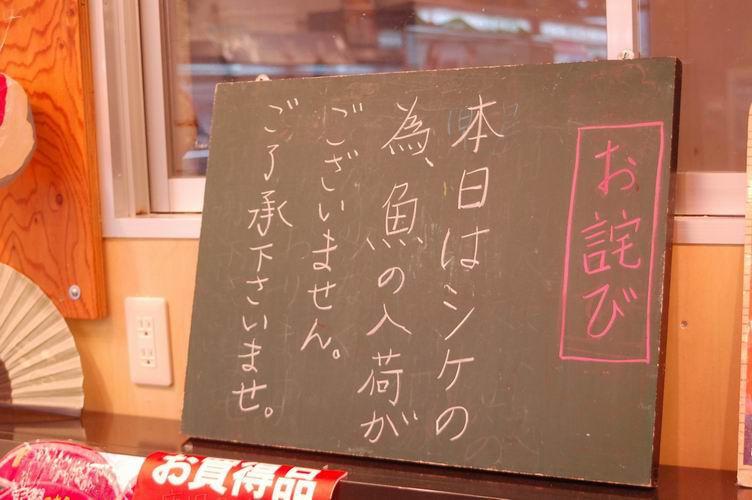 お詫び
本日はシケの
為、魚の入荷が
ございません。
ご了承下さいませ。
お買得品